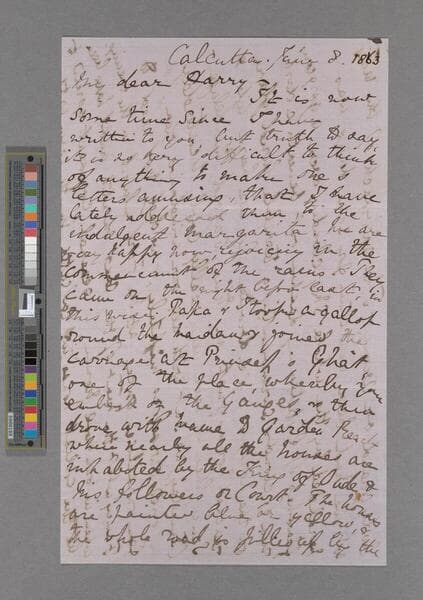 Calcutta. June 8. 1863
My dear Harry
It is now
some time since I have
written to you but truth to say,
it is so very difficult to think
of anything to make one's
letters amusing, that I have
lately addressed them to the
indulgent Margarita. We are
very happy now, rejoicing in the
commencement of the rains. They
came on the night before last, in
this wise. Papa & I took a gallop
round the Maidan & joined the
carriage at Prinsep's Ghât,
one of the place whereby you
embark on the Ganges, & then
drove with Mama to Garden Reach
where nearly all the houses are
inhabited by the King of Oude &
his followers or Court. The houses
are painted blue or yellow, &
the whole road is filled up by the